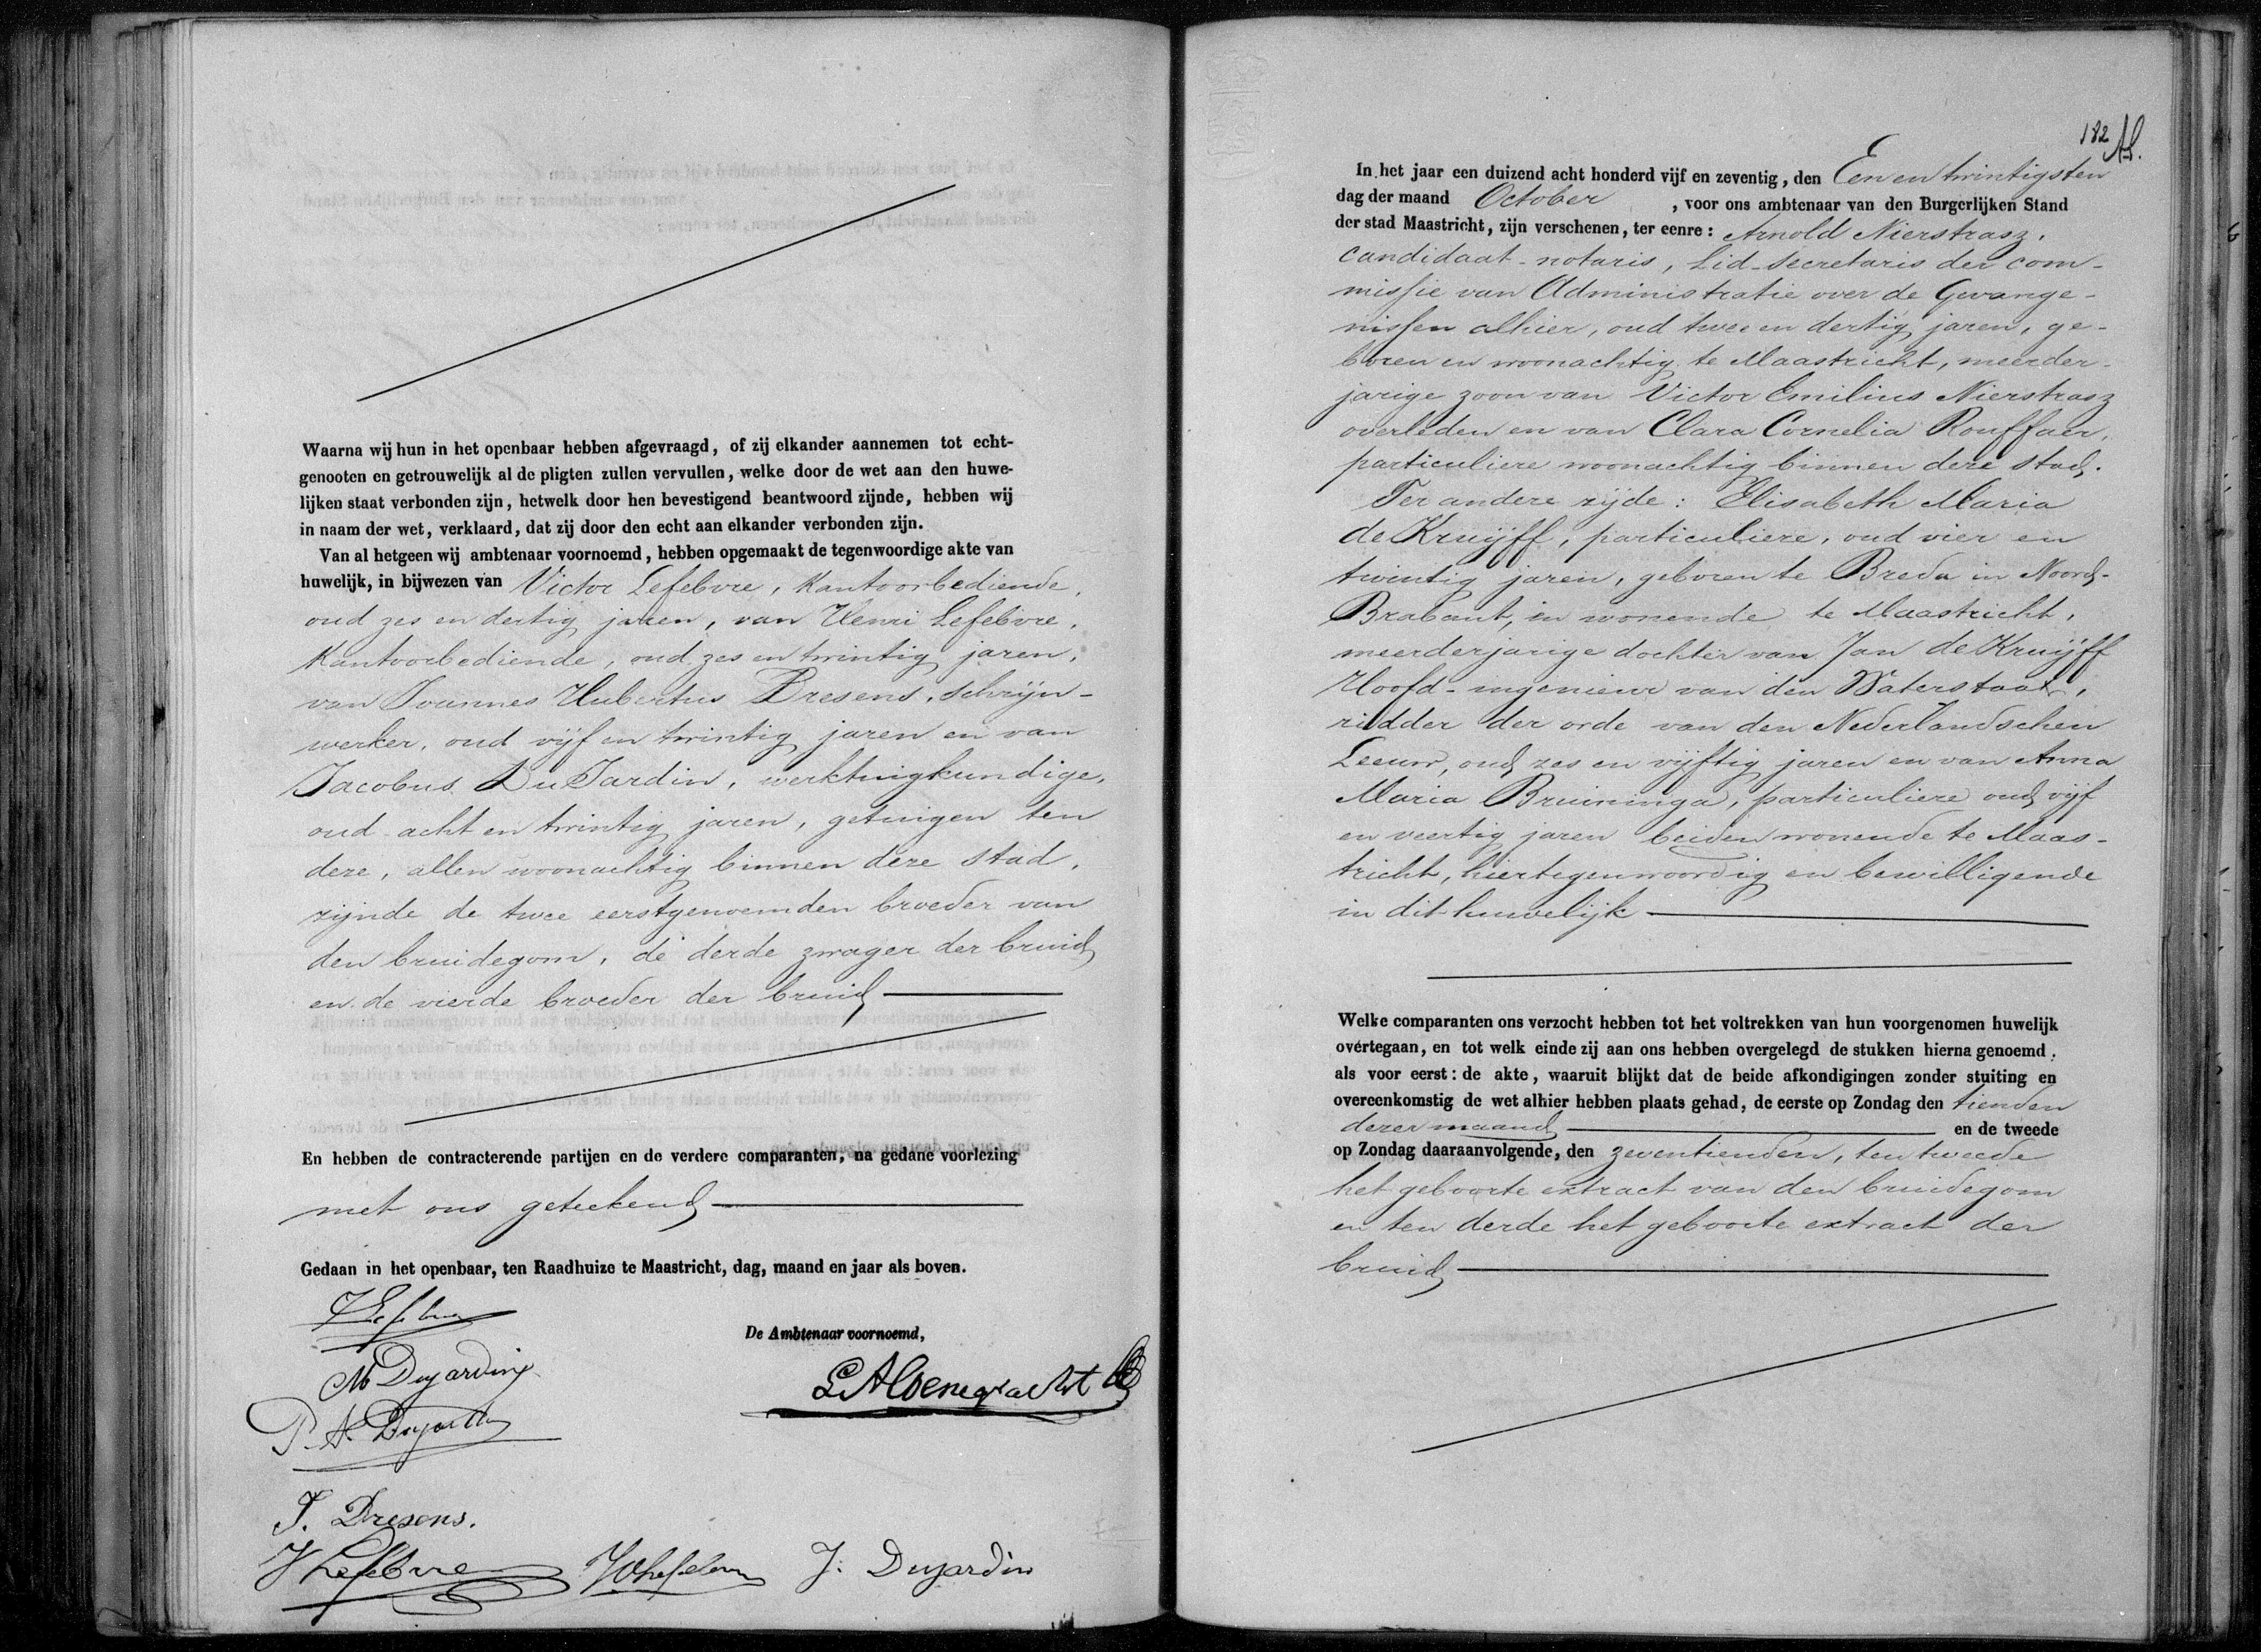 Waarna wij hun in het openbaar hebben afgevraagd, of zij elkander aannemen tot echt-
genooten en getrouwelijk al de pligten zullen vervullen, welke door de wet aan den huwe-
lijken staat verbonden zijn, hetwelk door hen bevestigend beantwoord zijnde, hebben wij
in naam der wet, verklaard, dat zij door den echt aan elkander verbonden zijn.
Van al hetgeen wij ambtenaar voornoemd, hebben opgemaakt de tegenwoordige akte van
huwelijk, in bijwezen van Victor Lefebvre, Kantoorbediende,
oud zes en dertig jaren, van Henri Lefebvre,
Kantoorbediende, oud zes en twintig jaren,
van Joannes Hubertus Dresens, schrijn-
werker, oud vijf en twintig jaren en van
Jacobus DuJardin, werktuigkundige,
oud acht en twintig jaren, getuigen ten
deze, allen woonachtig binnen deze stad,
zijnde de twee eerstgenoemden broeder van
den bruidegom, de derde zwager der bruid
en de vierde broeder der bruid
En hebben de contracterende partijen en de verdere comparanten, na gedane voorlezing
met ons geteekend
Gedaan in het openbaar, ten Raadhuize te Maastricht, dag, maand en jaar als boven.
De Ambtenaar voornoemd,
M Dujardin
P. A. Dujardin
J. Dresens.
H Lefebvre
J. Dujardin
182
In het jaar een duizend acht honderd vijf en zeventig, den Een en twintigsten
dag der maand October, voor ons ambtenaar van den Burgerlijken Stand
der stad Maastricht, zijn verschenen, ter eenre: Arnold Nierstrasz,
candidaat-notaris, Lid-Secretaris der com-
missie van Administratie over de Gevange-
nissen alhier, oud twee en dertig jaren, ge-
boren en woonachtig te Maastricht, meerder-
jarige zoon van Victor Emilius Nierstrasz
overleden en van Clara Cornelia Rouffaer,
particuliere woonachtig binnen deze stad.
Ter andere zijde: Elisabeth Maria
de Kruijff, particuliere, oud vier en
twintig jaren, geboren te Breda in Noord-
Brabant, en wonende te Maastricht,
meerderjarige dochter van Jan de Kruijff
Hoofd-ingenieur van den Waterstaat,
ridder der orde van den Nederlandschen
Leeuw, oud zes en vijftig jaren en van Anna
Maria Bruininga, particuliere oud vijf
en veertig jaren beiden wonende te Maas-
tricht, hiertegenwoordig en bewilligende
in dit huwelijk
Welke comparanten ons verzocht hebben tot het voltrekken van hun voorgenomen huwelijk
overtegaan, en tot welk einde zij aan ons hebben overgelegd de stukken hierna genoemd,
als voor eerst: de akte, waaruit blijkt dat de beide afkondigingen zonder stuiting en
overeenkomstig de wet alhier hebben plaats gehad, de eerste op Zondag den tienden
dezer maand en de tweede
op Zondag daaraanvolgende, den zeventienden, ten tweede
het geboorte extract van den bruidegom
en ten derde het geboorte extract der
bruid